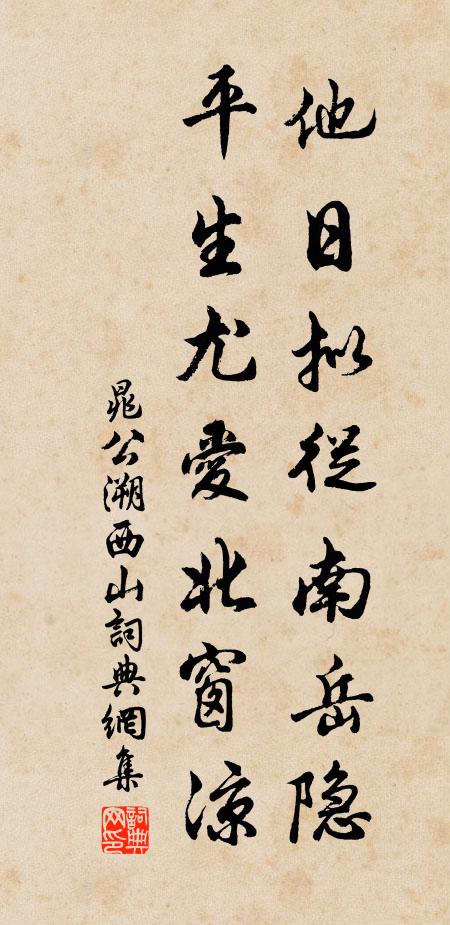 他日拟從南岳隐
平生尤愛北窗涼
晁公溯西山詞典網集
詞典网印